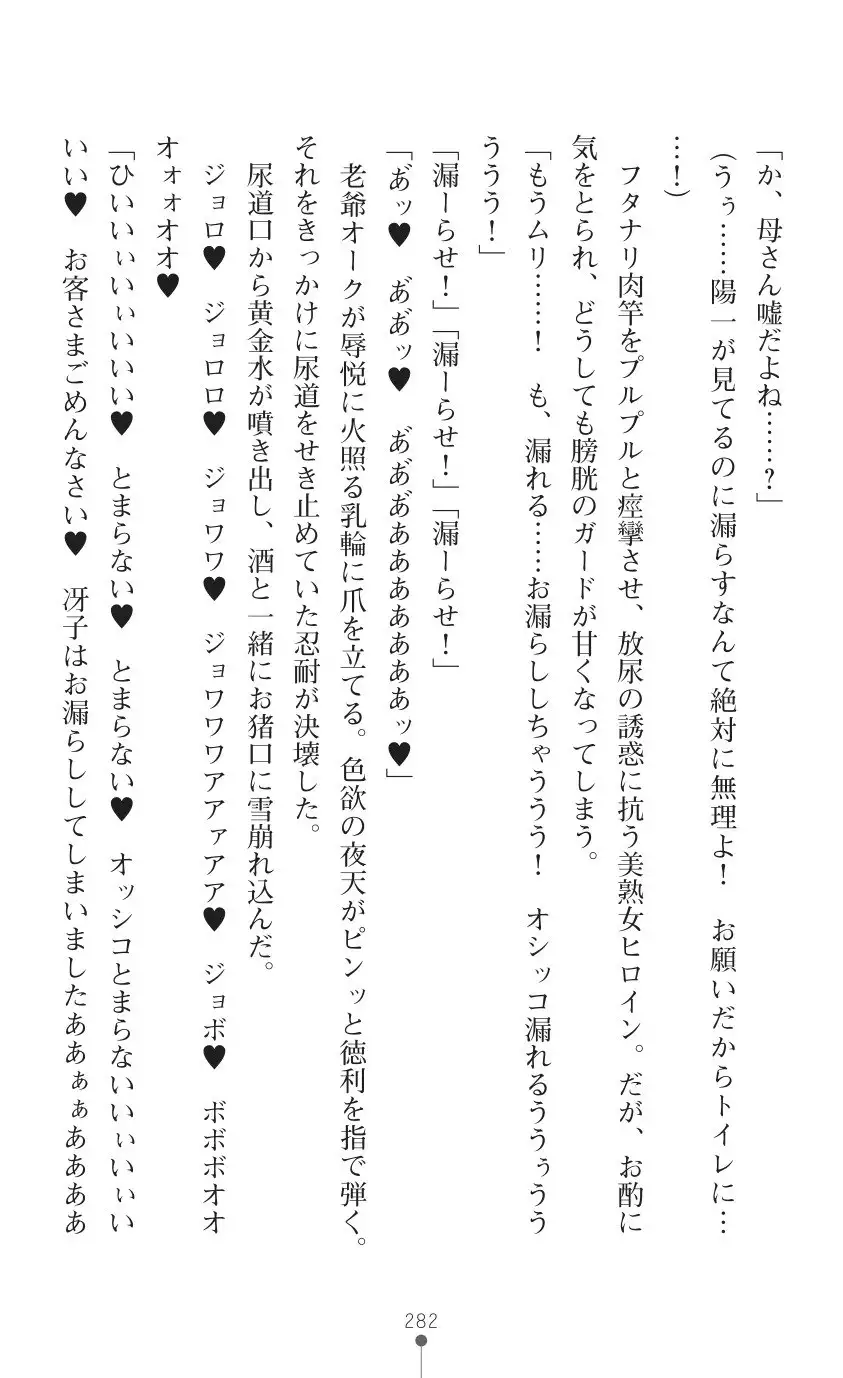 「か、母さん嘘だよね……？」
(うぅ……陽一が見てるのに漏らすなんて絶対に無理よ！　お願いだからトイレに…
…！)
　フタナリ肉竿をプルプルと痙攣させ、放尿の誘惑に抗う美熟女ヒロイン。だが、お酌に
気をとられ、どうしても膀胱のガードが甘くなってしまう。
「もうムリ……！　も、漏れる……お漏らししちゃううう！　オシッコ漏れるううぅうう
ううう！」
「漏ーらせ！」「漏ーらせ！」「漏ーらせ！」
「あ゛ッ♥　あ゛あ゛ッ♥　あ゛あ゛あ゛あああああああッ♥」
　老爺オークが辱悦に火照る乳輪に爪を立てる。色欲の夜天がピンッと徳利を指で弾く。
それをきっかけに尿道をせき止めていた忍耐が決壊した。
　尿道口から黄金水が噴き出し、酒と一緒にお猪口に雪崩れ込んだ。
　ジョロ♥　ジョロロ♥　ジョワワ♥　ジョワワワアアァアア♥　ジョボ♥　ボボボオオ
オォォオオ♥
「ひいいぃいぃいいい♥　とまらない♥　とまらない♥　オッシコとまらないいぃいぃい
いい♥　お客さまごめんなさい♥　冴子はお漏らししてしまいましたああぁぁああああ
282